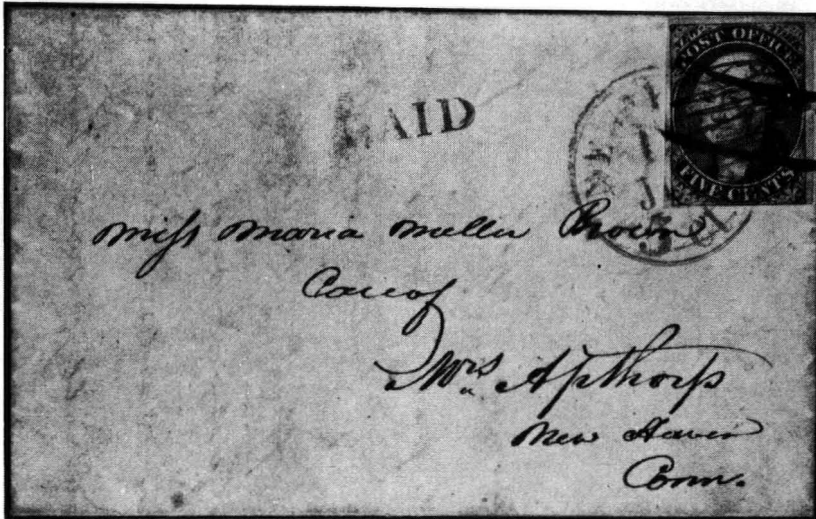 POST OFFICE
FIVE CENTS
PAID
5 cts
Miss Maria Miller Brown
Care of
Mrs Apthorp
New Haven
Conn.